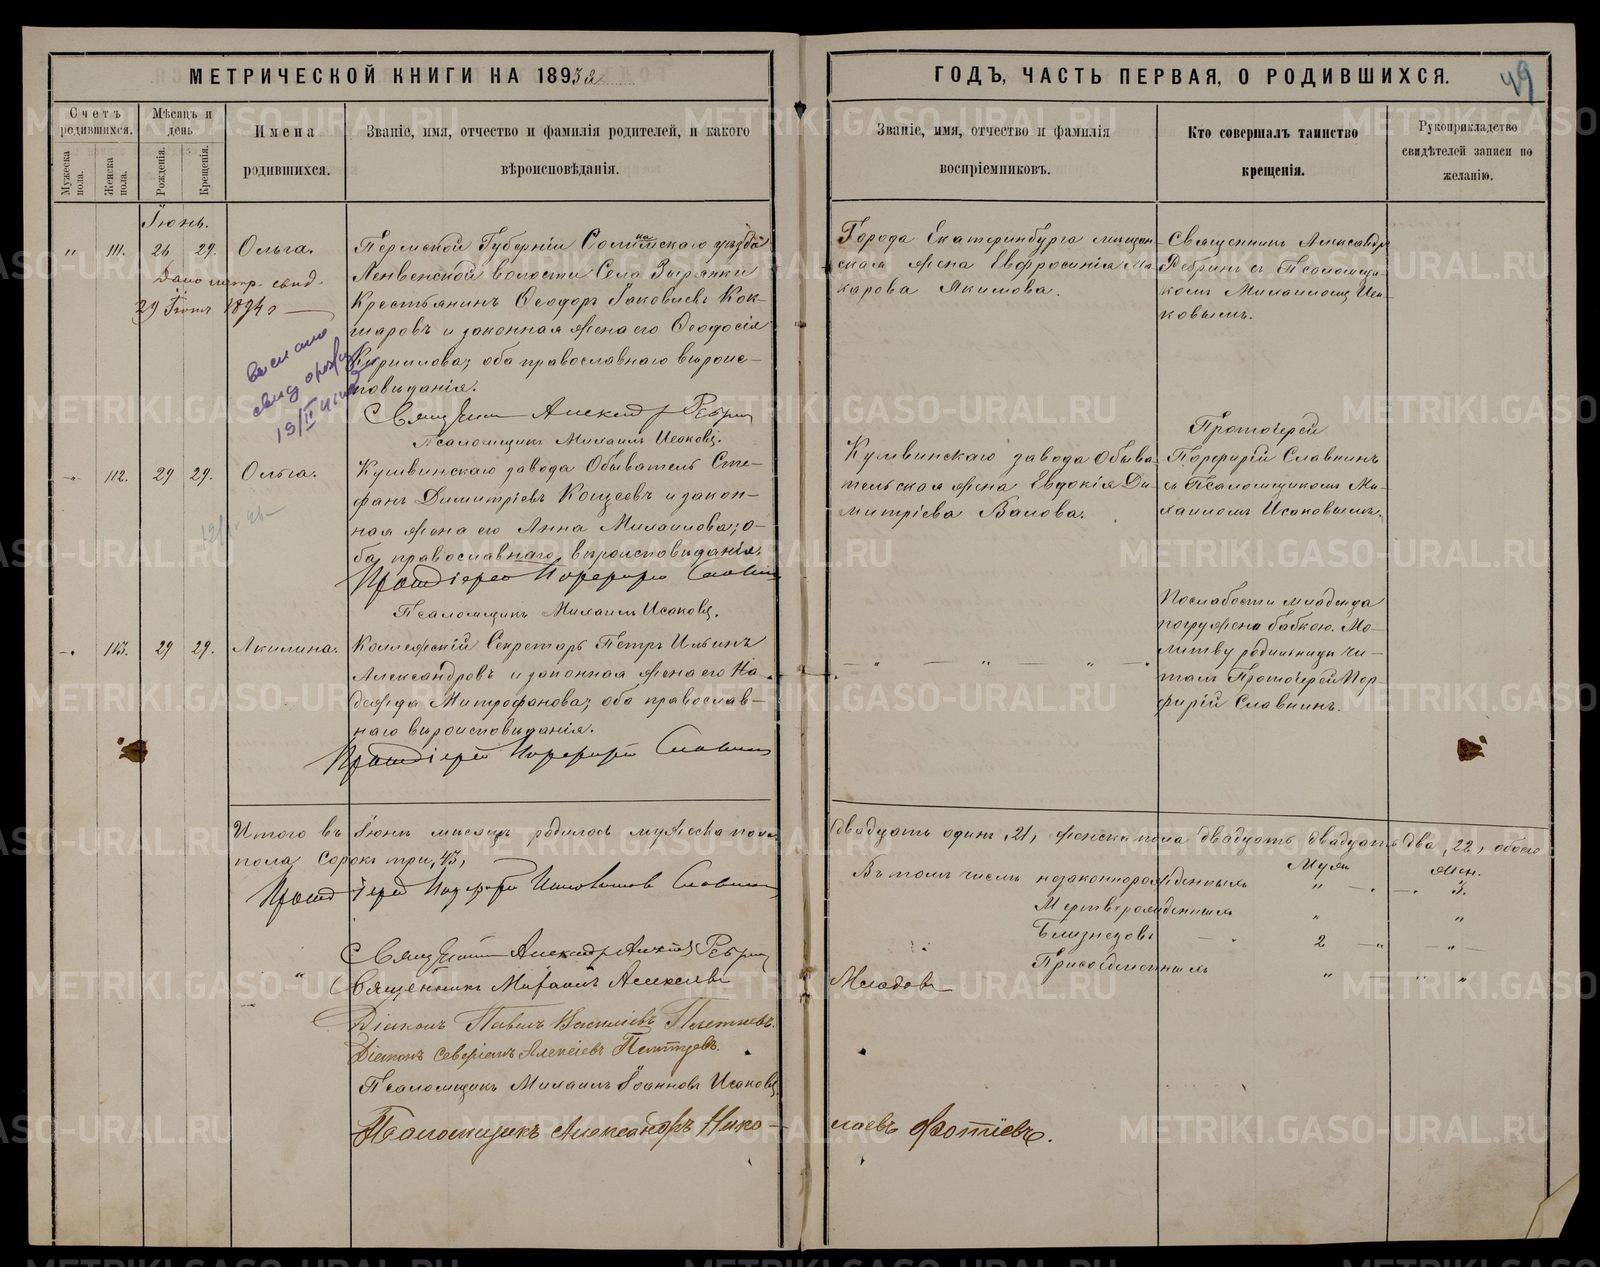 МЕТРИЧЕСКОЙ КНИГИ НА 1893й
ГОДЪ, ЧАСТЬ ПЕРВАЯ, О РОДИВШИХСЯ.
49
Счетъ родившихся.
Мужеска пола.
Женска пола.
Мѣсяцъ и день
Рожденія.
Крещенія.
Имена
родившихся.
Званіе, имя, отчество и фамилія родителей, и какого
вѣроисповѣданія.
Званіе, имя, отчество и фамилія
воспріемниковъ.
Кто совершалъ таинство
крещенія.
Рукоприкладство
свидѣтелей записи по
желанію.
Іюнь.
" 111. 26 29. Ольга.
Дано метр. свид.
29 1894 г
выслано
Пермской Губерніи уѣзда
Ленвенской волости Села Зырянки
Крестьянинъ Ѳеодоръ Іаковлевъ Кок-
шаровъ и законная жена его Ѳеодосія
Кириллова; оба православнаго вѣроис-
повѣданія.
Священникъ Александръ
Псаломщикъ Михаилъ Исаковъ.
Города Екатеринбурга мѣщан-
ская жена Евфросинія Ма-
карова Якимова.
Священникъ Александръ
съ Псаломщи-
комъ Михаиломъ Иса-
ковымъ.
112. 29 29. Ольга.
Кушвинскаго завода Обыватель Сте-
фанъ Димитріевъ и закон-
ная жена его Анна Михаилова; о-
ба православнаго вѣроисповѣданія.
Протоіерей Порфирій Славнинъ
Псаломщикъ Михаилъ Исаковъ.
Кушвинскаго завода Обыва-
тельская жена Евдокія Ди-
митріева Валова.
Протоіерей
Порфирій Славнинъ
съ Псаломщикомъ Ми-
хаиломъ Исаковымъ.
113. 29 29. Акилина.
Коллежскій Секретарь Петръ Ильинъ
Александровъ и законная жена его На-
дежда Митрофанова; оба православ-
наго вѣроисповѣданія.
Протоіерей Порфирій Славнинъ
По слабости младенца
погружена бабкою. Мо-
литву родильницѣ чи-
талъ Протоіерей Пор-
фирій Славнинъ.
Итого въ Іюнѣ мѣсяцѣ родилось мужеска пола двадцать одинъ, 21, женска пола двадцать двадцать два, 22, обоего
пола сорокъ три, 43,
Въ томъ числѣ незаконнорожденныхъ
Муж. Жен.
" 3.
Мертворожденныхъ " "
Близнецовъ 2 "
Присоединенныхъ " "
Протоіерей Порфирій Славнинъ
Священникъ Александръ
Священникъ Михаилъ Алексѣевъ
Діаконъ Павелъ Василіевъ
Діаконъ Алексіевъ
Псаломщикъ Михаилъ Іоанновъ Исаковъ
Псаломщикъ Александръ Нико-
лаевъ Фотіевъ.
METRIKI.GASO-URAL.RU